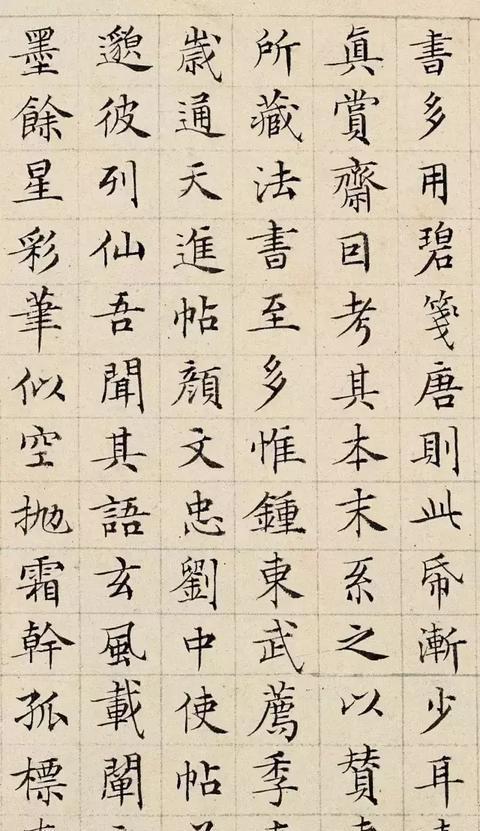 書多用碧箋唐則此帋漸少耳
真賞齋回考其本末系之以賛
所藏法書至多惟鍾東武薦季
嵗通天進帖顏文忠劉中使帖
邈彼列仙吾聞其語玄風載闡
墨餘星彩筆似空拋霜幹孤標